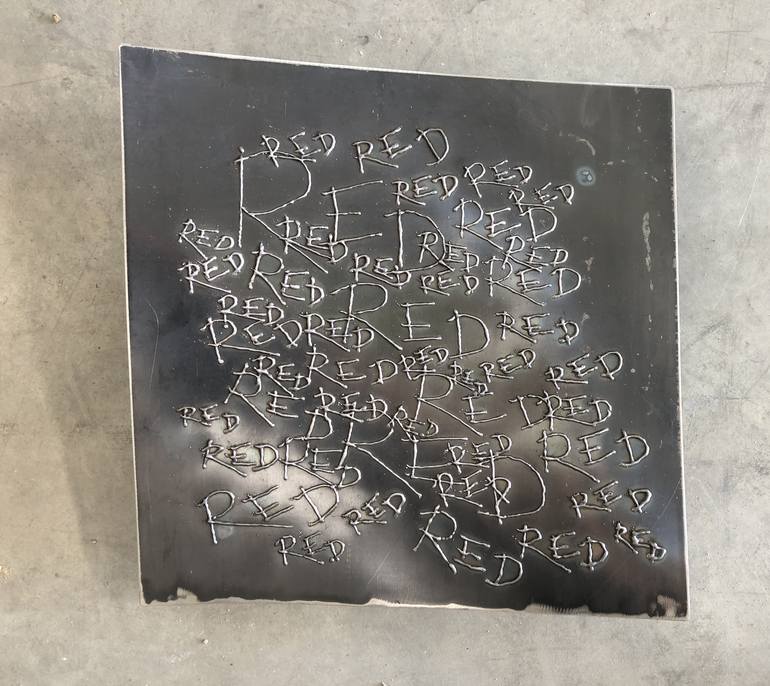 RED RED
RED RED RED
RED RED
RED RED RED RED
RED RED RED RED RED
RED RED RED
RED RED
RED RED RED RED RED RED
RED RED RED RED
RED RED
RED RED RED
RED RED RED
RED RED RED
RED RED RED RED